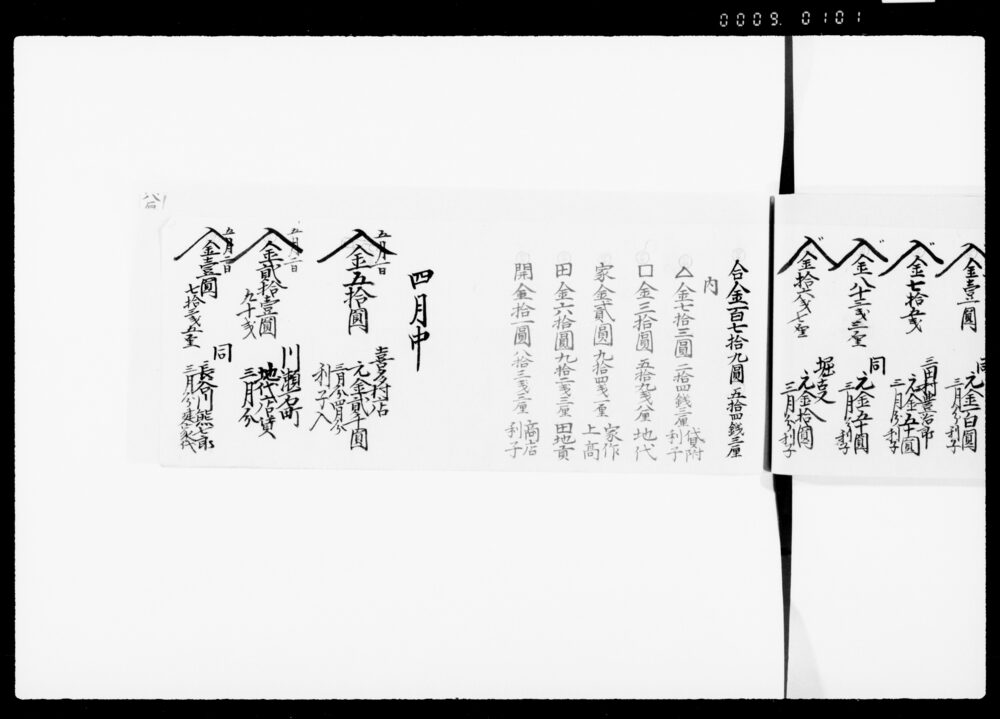 0009. 0101
金壹圓
同
元金一百圓
三月分利子
金七拾五戔
三田村豊治郎
元金五十圓
三月分利子
金八十三戔三厘
同
元金五十圓
三月分利子
金拾六戔七厘
堀
元金拾圓
三月分利子
合金一百七拾九圓五拾四銭三厘
内
△金七拾三圓二拾四銭三厘
貸附利子
口金三拾圓五拾九戔八厘地代
家金貳圓九拾四戔一厘
家作上高
田金六拾圓九拾二戔三厘田地貢
開金拾一圓八拾三戔三厘
商店利子
四月中
五月一日
金五拾圓
喜多村店
元金貳千圓
三月分四月分
利子入
五月一日
金貳拾壹圓
九十戔
川瀬石町
地代店賃
三月分
五月二日
金壹圓
七拾三戔五厘
同
長谷川熊七郎
三月分